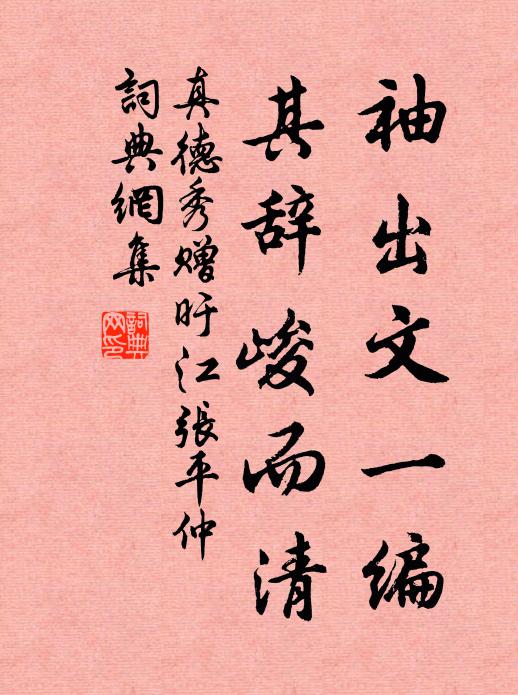 袖出文一编
其辞峻而清
真德秀赠旴江張平仲
詞典網集
詞典网印